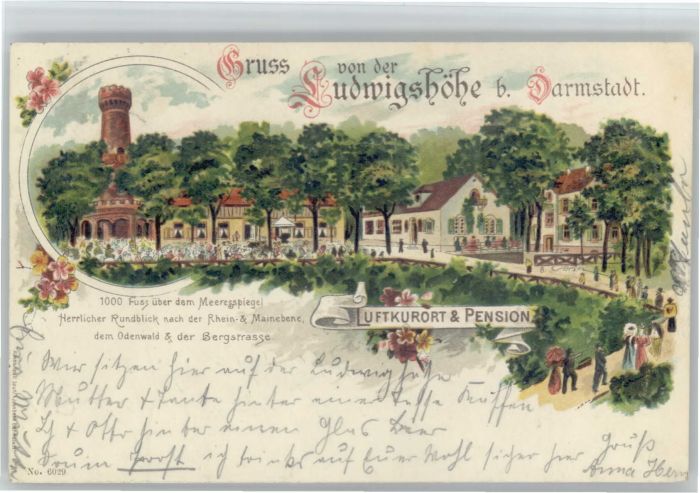 Gruss von der
Ludwigshöhe b. Darmstadt.
1000 Fuss über dem Meeresspiegel
Herrlicher Rundblick nach der Rhein- & Mainebene,
dem Odenwald & der Bergstrasse
LUFTKURORT & PENSION
Wir sitzen hier auf der Ludwigshöhe
Mutter & Tante hinter einer Tasse Kaffee
Ich & Otto hinter einem Glas Bier
Drum Prost ich trinke auf Euer Wohl sicher hier Gruß
Anna
No. 6029